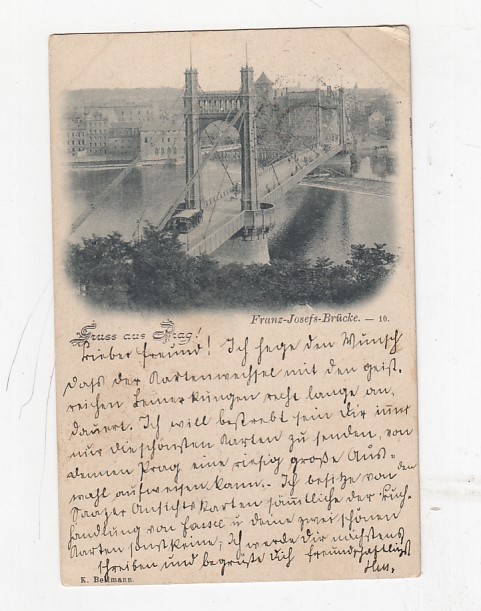 Franz-Josefs-Brücke. — 10.
Gruss aus Prag!
Lieber Freund! Ich hege den Wunsch
dass der Kartenwechsel mit den geist.
reichen Bemerkungen recht lange an,
dauert. Ich will bestrebt sein Dir immer
nur die schönsten Karten zu senden, von
denen Prag eine riesig große Aus-
wahl aufweisen kann.- Ich besitze von den
Saazer Ansichtskarten sämtliche der Buch-
handlung von u deine zwei schönen
Karten sonst keine; Ich werde dir nächstens
schreiben und begrüße dich freundschaftlichst
K. Bellmann.